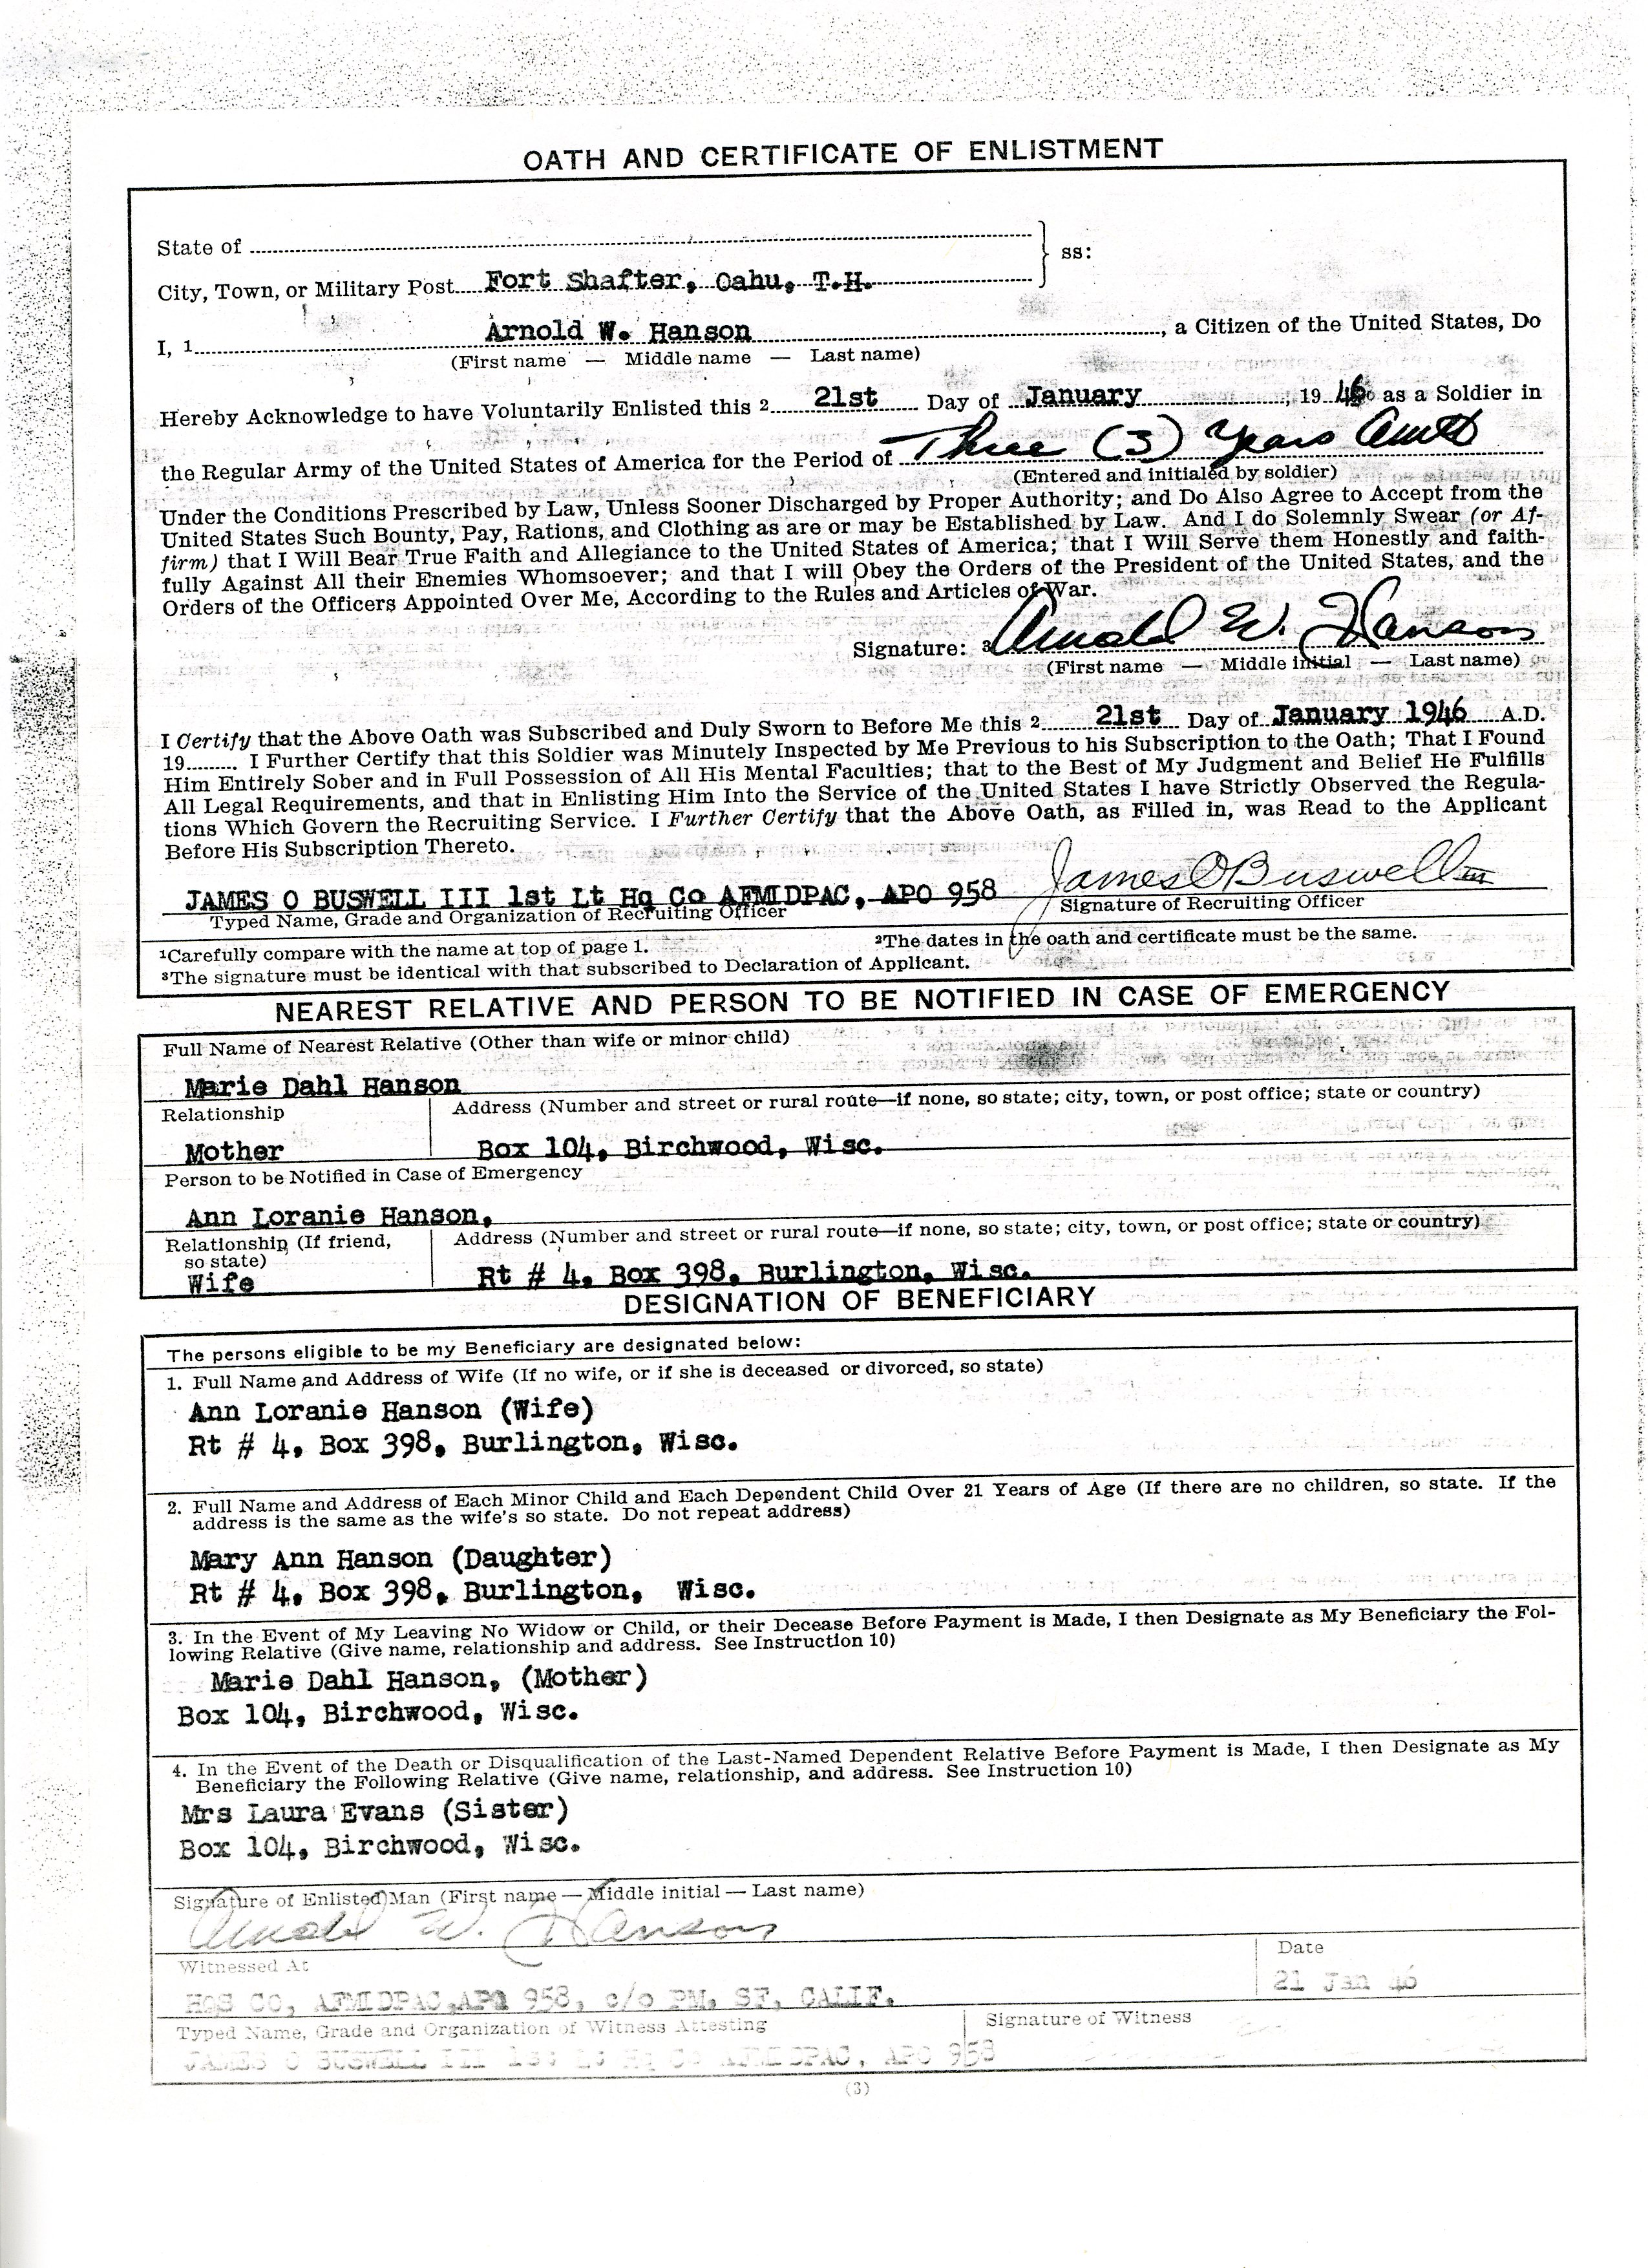 OATH AND CERTIFICATE OF ENLISTMENT
State of
ss:
City, Town, or Military Post Fort Shafter, Oahu, T.H.
I, 1 Arnold W. Hanson, a Citizen of the United States, Do
(First name — Middle name — Last name)
Hereby Acknowledge to have Voluntarily Enlisted this 2 21st Day of January, 19 46 as a Soldier in
the Regular Army of the United States of America for the Period of Three (3) Years AWH
(Entered and initialed by soldier)
Under the Conditions Prescribed by Law, Unless Sooner Discharged by Proper Authority; and Do Also Agree to Accept from the
United States Such Bounty, Pay, Rations, and Clothing as are or may be Established by Law. And I do Solemnly Swear (or Af-
firm) that I Will Bear True Faith and Allegiance to the United States of America; that I Will Serve them Honestly and faith-
fully Against All their Enemies Whomsoever; and that I will Obey the Orders of the President of the United States, and the
Orders of the Officers Appointed Over Me, According to the Rules and Articles of War.
Signature: 3 Arnold W. Hanson
(First name — Middle initial — Last name)
I Certify that the Above Oath was Subscribed and Duly Sworn to Before Me this 2 21st Day of January 1946 A.D.
19 I Further Certify that this Soldier was Minutely Inspected by Me Previous to his Subscription to the Oath; That I Found
Him Entirely Sober and in Full Possession of All His Mental Faculties; that to the Best of My Judgment and Belief He Fulfills
All Legal Requirements, and that in Enlisting Him Into the Service of the United States I have Strictly Observed the Regula-
tions Which Govern the Recruiting Service. I Further Certify that the Above Oath, as Filled in, was Read to the Applicant
Before His Subscription Thereto.
JAMES O BUSWELL III 1st Lt Hq Co AFMIDPAC, APO 958 James O Buswell III
Typed Name, Grade and Organization of Recruiting Officer Signature of Recruiting Officer
1Carefully compare with the name at top of page 1. 2The dates in the oath and certificate must be the same.
3The signature must be identical with that subscribed to Declaration of Applicant.
NEAREST RELATIVE AND PERSON TO BE NOTIFIED IN CASE OF EMERGENCY
Full Name of Nearest Relative (Other than wife or minor child)
Marie Dahl Hanson
Relationship Address (Number and street or rural route—if none, so state; city, town, or post office; state or country)
Mother Box 104, Birchwood, Wisc.
Person to be Notified in Case of Emergency
Ann Loranie Hanson,
Relationship (If friend, Address (Number and street or rural route—if none, so state; city, town, or post office; state or country)
so state)
Wife Rt # 4, Box 398, Burlington, Wisc.
DESIGNATION OF BENEFICIARY
The persons eligible to be my Beneficiary are designated below:
1. Full Name and Address of Wife (If no wife, or if she is deceased or divorced, so state)
Ann Loranie Hanson (Wife)
Rt # 4, Box 398, Burlington, Wisc.
2. Full Name and Address of Each Minor Child and Each Dependent Child Over 21 Years of Age (If there are no children, so state. If the
address is the same as the wife's so state. Do not repeat address)
Mary Ann Hanson (Daughter)
Rt # 4, Box 398, Burlington, Wisc.
3. In the Event of My Leaving No Widow or Child, or their Decease Before Payment is Made, I then Designate as My Beneficiary the Fol-
lowing Relative (Give name, relationship and address. See Instruction 10)
Marie Dahl Hanson, (Mother)
Box 104, Birchwood, Wisc.
4. In the Event of the Death or Disqualification of the Last-Named Dependent Relative Before Payment is Made, I then Designate as My
Beneficiary the Following Relative (Give name, relationship, and address. See Instruction 10)
Mrs Laura Evans (Sister)
Box 104, Birchwood, Wisc.
Signature of Enlisted Man (First name — Middle initial — Last name)
Arnold W. Hanson
Witnessed At Date
HQS CO, AFMIDPAC, APO 958, c/o PM, SF, CALIF. 21 Jan 46
Typed Name, Grade and Organization of Witness Attesting Signature of Witness
JAMES O BUSWELL III 1st Lt Hq Co AFMIDPAC, APO 958
(3)